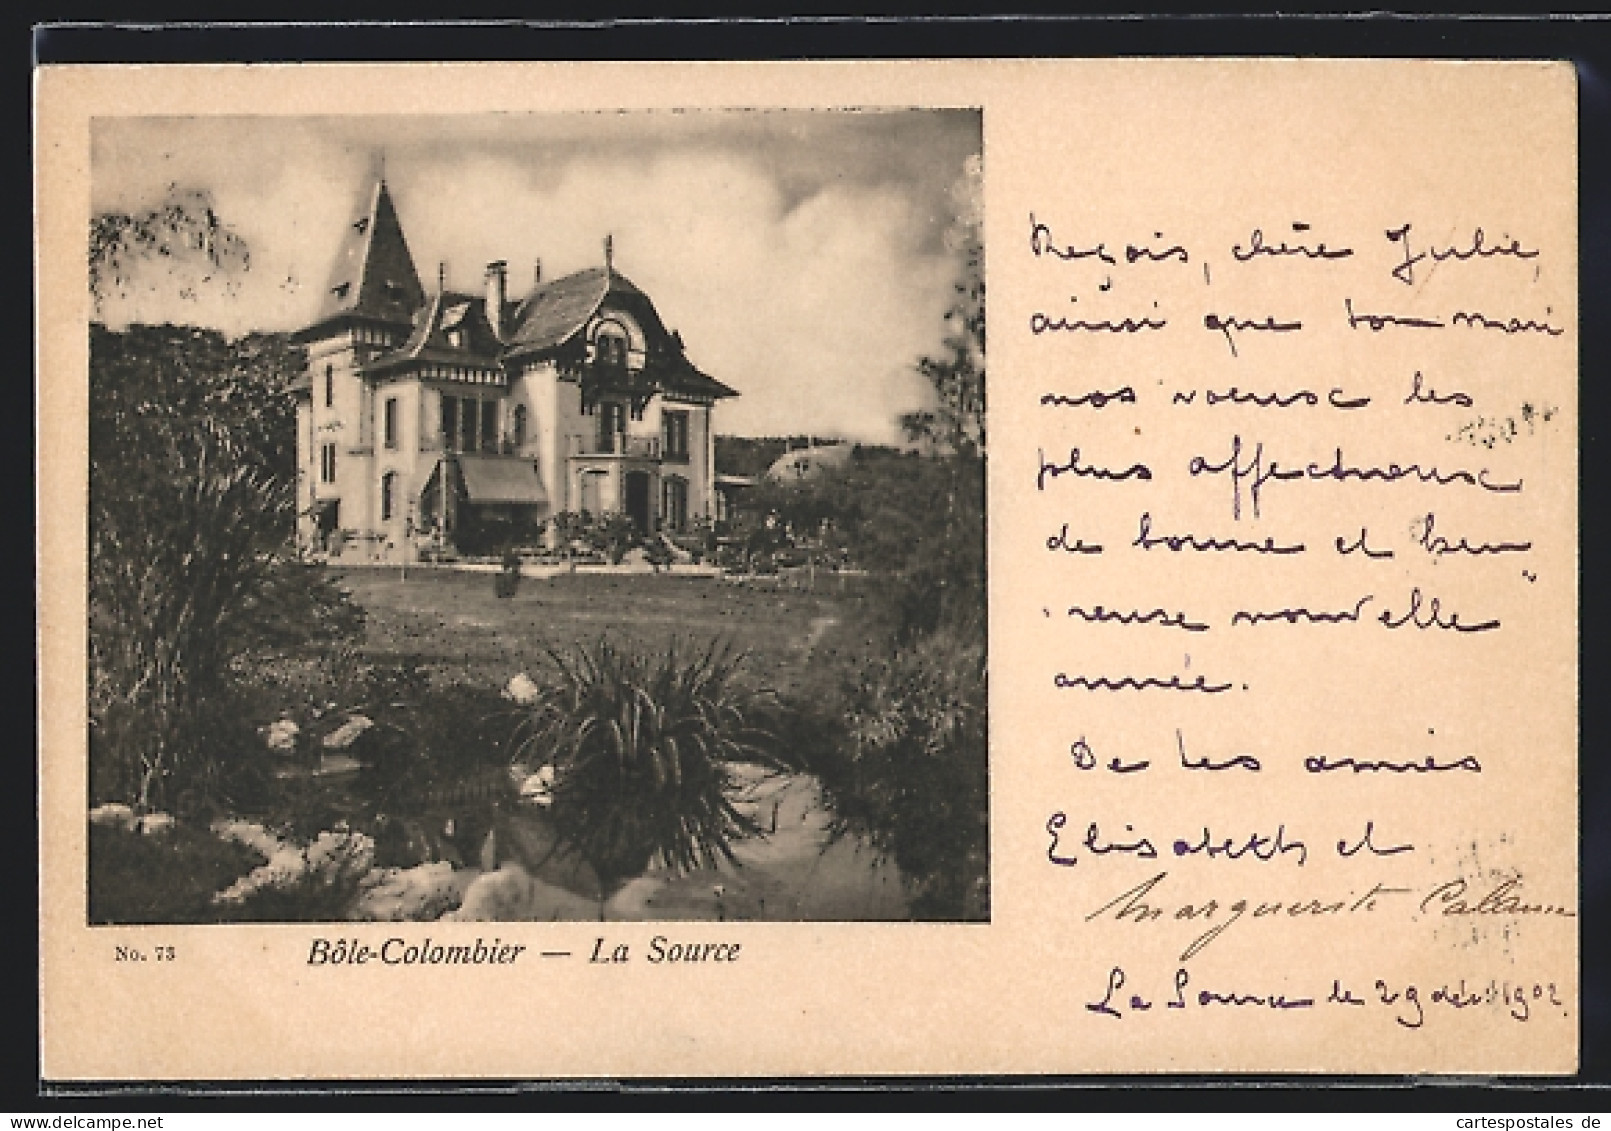 Reçois, chère Julie,
ainsi que ton mari
nos voeux les
plus affectueux
de bonne et heu"
reuse nouvelle
année.
De tes amies
Elisabeth et
Marguerite Calame
La Source le 29 déc. 1902.
No. 73
Bôle-Colombier — La Source
delcampe.net
cartespostales de